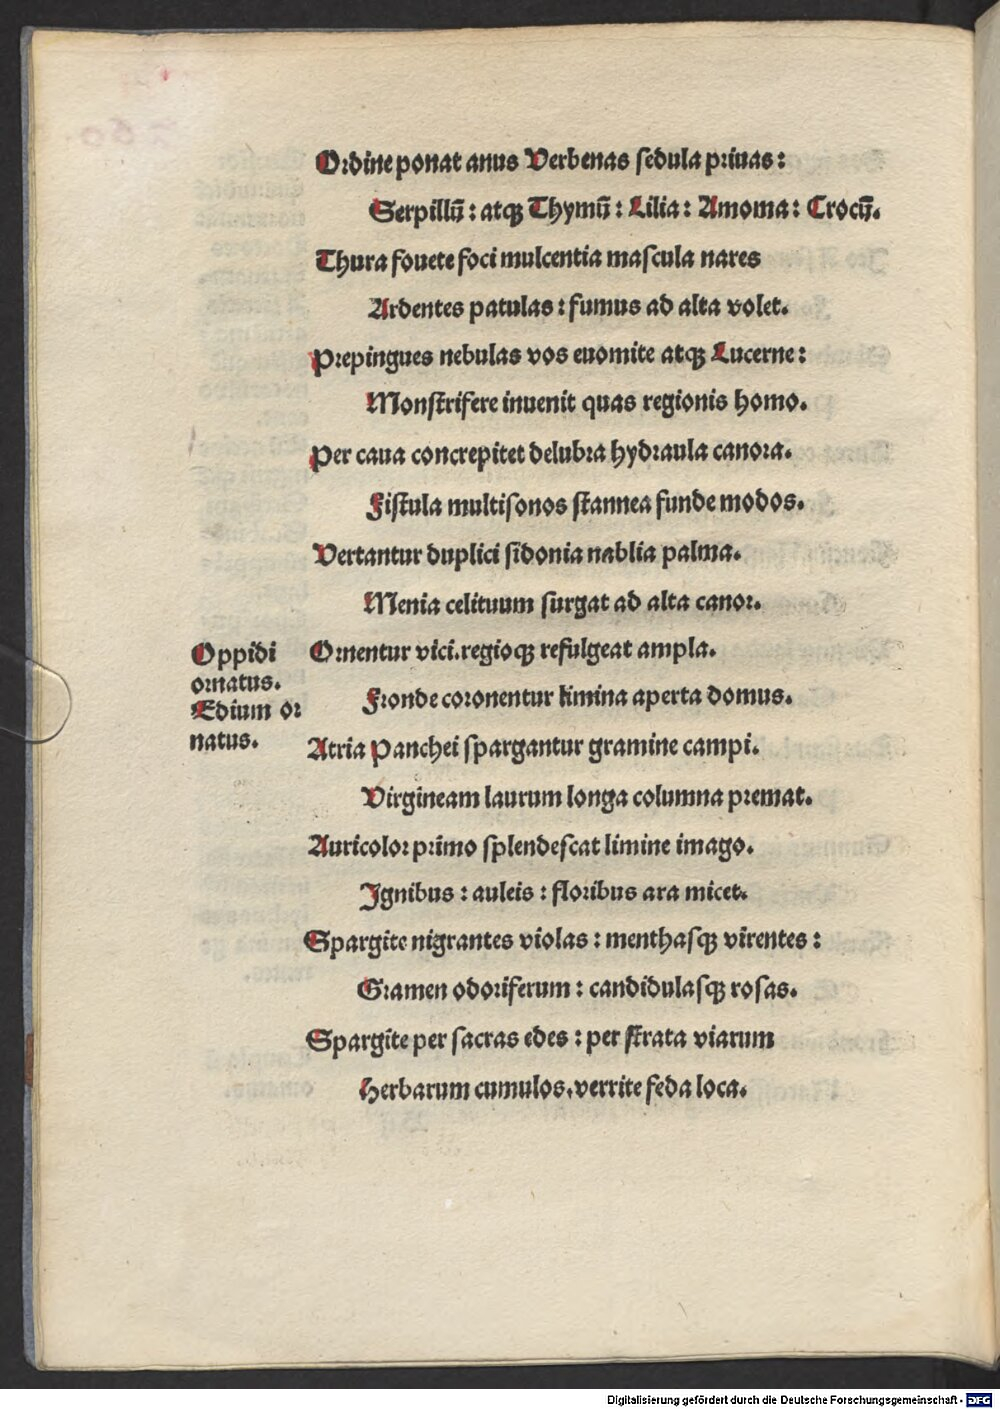 Ordine ponat anus Verbenas sedula priuas:
Serpillū: atqꝫ Thymū: Lilia: Amoma: Crocū.
Thura fouete foci mulcentia mascula nares
Ardentes patulas: fumus ad alta volet.
Prepingues nebulas vos euomite atqꝫ Lucerne:
Monstrifere inuenit quas regionis homo.
Per caua concrepitet delubra hydraula canora.
Fistula multisonos stannea funde modos.
Vertantur duplici sidonia nablia palma.
Menia celituum surgat ad alta canor.
Oppidi
ornatus.
Edium or
natus.
Ornentur vici. regioqꝫ refulgeat ampla.
Fronde coronentur limina aperta domus.
Atria Panchei spargantur gramine campi.
Virgineam laurum longa columna premat.
Auricolor primo splendescat limine imago.
Ignibus: auleis: floribus ara micet.
Spargite nigrantes violas: menthasqꝫ virentes:
Gramen odoriferum: candidulasqꝫ rosas.
Spargite per sacras edes: per strata viarum
Herbarum cumulos. verrite feda loca.
Digitalisierung gefördert durch die Deutsche Forschungsgemeinschaft - DFG